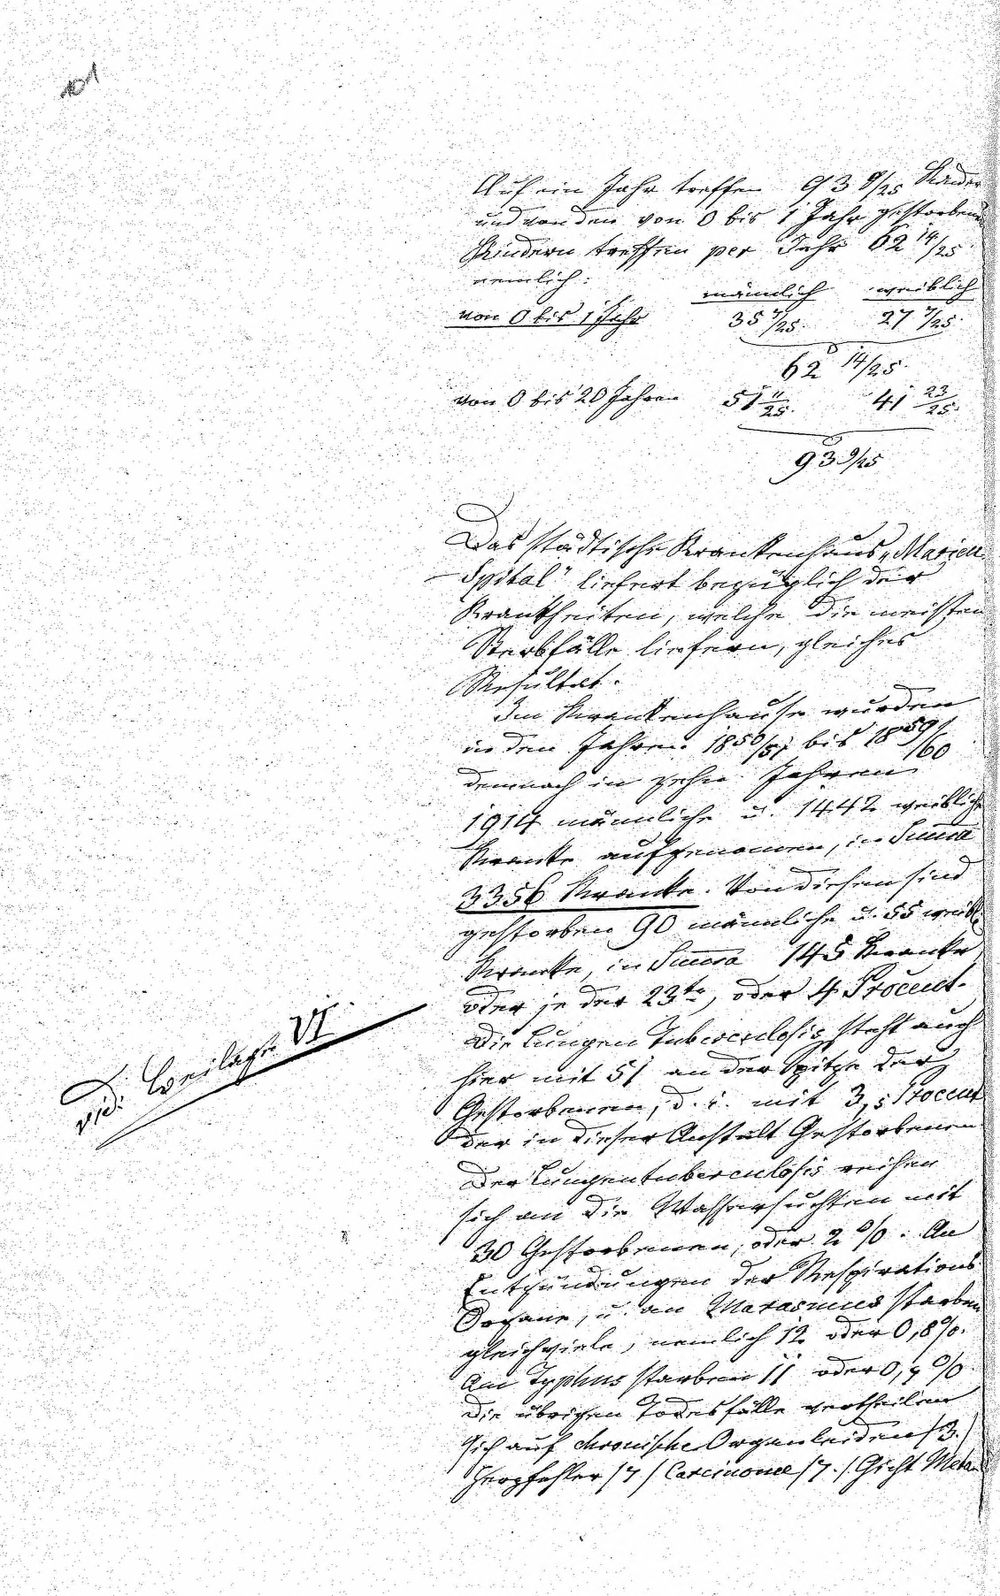 101
Auf ein Jahr treffen 93 9/25 Kinder
und von den von 0 bis 1 Jahr gestorbenen
Kindern treffen per Jahr 62 14/25
nemlich:
männlich weiblich
von 0 bis 1 Jahr 35 7/25. 27 7/25.
62 14/25.
von 0 bis 20 Jahren 51 11/25. 41 23/25.
93 9/25
Das städtische Krankenhaus „Marien
Spital" liefert bezüglich der
Krankheiten, welche die meisten
Sterbfälle liefern, gleiches
Resultat.
Im Krankenhause wurden
in den Jahren 1850/51 bis 1859/60
demnach in zehn Jahren
1914 männliche u. 1442 weibliche
Kranke aufgenomen, in Suma
3356 Kranke. Von diesen sind
gestorben 90 männliche u. 55 weibl.
Krancke, in Suma 145 Kranke,
oder je der 23te, oder 4 Procent.
Die Lungen Tuberculosis steht auch
hier mit 51 an der Spitze der
Gestorbenen, d. i. mit 3,5 Procent
der in dieser Anstalt Gestorbenen.
Der Lungentuberculosis reihen
sich an die Wassersuchten mit
30 Gestorbenen, oder 2 %. An
Entzündungen der Respirations
Organe, u. an Marasmus starben
gleichviele, nemlich 12 oder 0,8 %.
An Typhus starben 11 oder 0,7 %
die übrigen Todesfälle vertheilen
sich auf chronische Organleiden /3./
Herzfehler /7/ Carcinome /7./ Gicht
vid. Beilage VI.